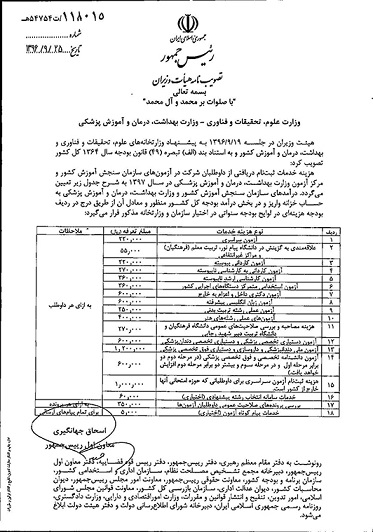 ۱۱۸۰۱۵/ت۵۴۷۵۴هـ
شماره
۱۳۹۶/۹/۲۵
تاریخ
جمهوری اسلامی ایران
رئیس جمهور
تصویب نامه هیأت وزیران
بسمه تعالی
"با صلوات بر محمد و آل محمد"
وزارت علوم، تحقیقات و فناوری - وزارت بهداشت، درمان و آموزش پزشکی
هیئت وزیران در جلسه ۱۳۹۶/۹/۱۹ به پیشنهاد وزارتخانه‌های علوم، تحقیقات و فناوری و
بهداشت، درمان و آموزش پزشکی و به استناد بند (الف) تبصره (۴۹) قانون بودجه سال ۱۳۶۴ کل کشور
تصویب کرد:
هزینه خدمات ثبت‌نام دریافتی از داوطلبان شرکت در آزمون‌های سازمان سنجش آموزش کشور و
مرکز آزمون وزارت بهداشت، درمان و آموزش پزشکی در سال ۱۳۹۷ به شرح جدول زیر تعیین
می‌گردد. درآمدهای سازمان سنجش آموزش کشور و وزارت بهداشت، درمان و آموزش پزشکی به
حساب خزانه واریز و در بخش درآمد بودجه کل کشور منظور و معادل آن از طریق درج در ردیف
بودجه هزینه‌ای در لوایح بودجه سنواتی در اختیار سازمان و وزارتخانه مذکور قرار می‌گیرد:
ردیف نوع هزینه خدمات مبلغ تعرفه (ریال) ملاحظات
۱ آزمون سراسری ۲۲۰,۰۰۰
۲ علاقمندی به گزینش در دانشگاه پیام نور، تربیت معلم (فرهنگیان) و مراکز غیرانتفاعی ۵۵,۰۰۰
۳ آزمون کاردانی پیوسته ۲۲۰,۰۰۰
۴ آزمون کاردانی به کارشناسی ناپیوسته ۲۷۰,۰۰۰
۵ آزمون کارشناسی ارشد ناپیوسته ۳۶۰,۰۰۰
۶ آزمون استخدامی متمرکز دستگاه‌های اجرایی کشور ۳۶۰,۰۰۰
۷ آزمون دکتری داخل و اعزام به خارج ۶۰۰,۰۰۰
۸ آزمون زبان انگلیسی پیشرفته ۶۰۰,۰۰۰
۹ آزمون عملی رشته تربیت بدنی ۲۵۰,۰۰۰
۱۰ آزمون‌های عملی رشته‌های هنر ۴۰۰,۰۰۰
۱۱ هزینه مصاحبه و بررسی صلاحیت‌های عمومی دانشگاه فرهنگیان و دانشگاه تربیت دبیر شهید رجایی ۲۷۰,۰۰۰
۱۲ آزمون دستیاری تخصصی پزشکی و دستیاری تخصصی دندانپزشکی ۶۰۰,۰۰۰
۱۳ آزمون ملی دندانپزشکی و داروسازی و دستیاری فوق تخصصی پزشکی ۱,۲۰۰,۰۰۰
۱۴ آزمون دانشنامه تخصصی و فوق تخصصی پزشکی (در مرحله دوم دو برابر مرحله اول و در مرحله سوم و بیشتر دو برابر مرحله دوم افزایش خواهد یافت) ۶۰۰,۰۰۰
۱۵ هزینه ثبت‌نام آزمون سراسری برای داوطلبانی که حوزه امتحانی آنها خارج از کشور است. ۱,۰۰۰,۰۰۰
۱۶ خدمات سامانه انتخاب رشته پیشنهادی (اختیاری) ۶۰,۰۰۰
۱۷ بررسی پرونده‌های صلاحیت عمومی داوطلبان آزمون‌ها ۳۵۰,۰۰۰
۱۸ خدمات پیام کوتاه آزمون (اختیاری) ۵,۰۰۰
به ازای هر داوطلب
به ازای هر پرونده
برای تمام پیام‌های ارسالی
اسحاق جهانگیری
معاون اول رییس‌جمهور
رونوشت به دفتر مقام معظم رهبری، دفتر رییس‌جمهور، دفتر رییس قوه قضاییه، دفتر معاون اول
رییس‌جمهور، دبیرخانه مجمع تشخیص مصلحت نظام، سازمان اداری و استخدامی کشور،
سازمان برنامه و بودجه کشور، معاونت حقوقی رییس‌جمهور، معاونت امور مجلس رییس‌جمهور، دیوان
محاسبات کشور، دیوان عدالت اداری، سازمان بازرسی کل کشور، معاونت قوانین مجلس شورای
اسلامی، امور تدوین، تنقیح و انتشار قوانین و مقررات، وزارت امور اقتصادی و دارایی، وزارت دادگستری،
روزنامه رسمی جمهوری اسلامی ایران، دبیرخانه شورای اطلاع‌رسانی دولت و دفتر هیئت دولت ابلاغ
می‌شود.